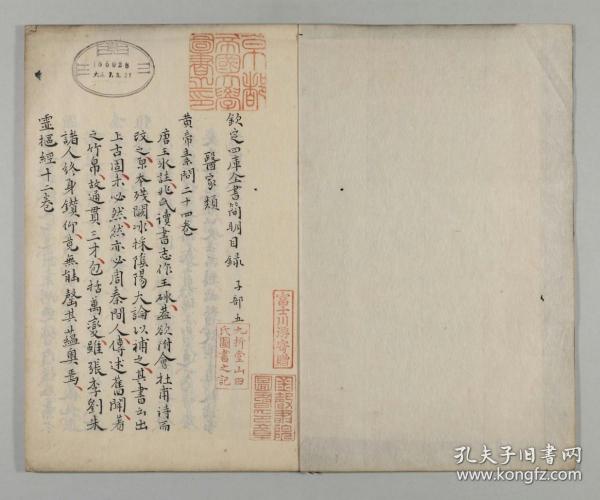 欽定四庫全書簡明目錄 子部五
醫家類
黄帝素問二十四卷
唐王氷註晁氏讀書志作王砯葢欲附會杜甫詩而
攷之原本殘闕氷採陰陽大論以補之其書云出
上古固未必然然亦必周秦間人傳述舊聞著
之竹帛故通貫三才包括萬變雖張李劉朱
諸人終身鑽仰竟無能罄其蘊奥焉
靈樞經十二卷
京都
帝國大學
圖書之印
富士川游寄贈
九折堂山田
氏圖書之記
166028
孔夫子旧书网
www.kongfz.com